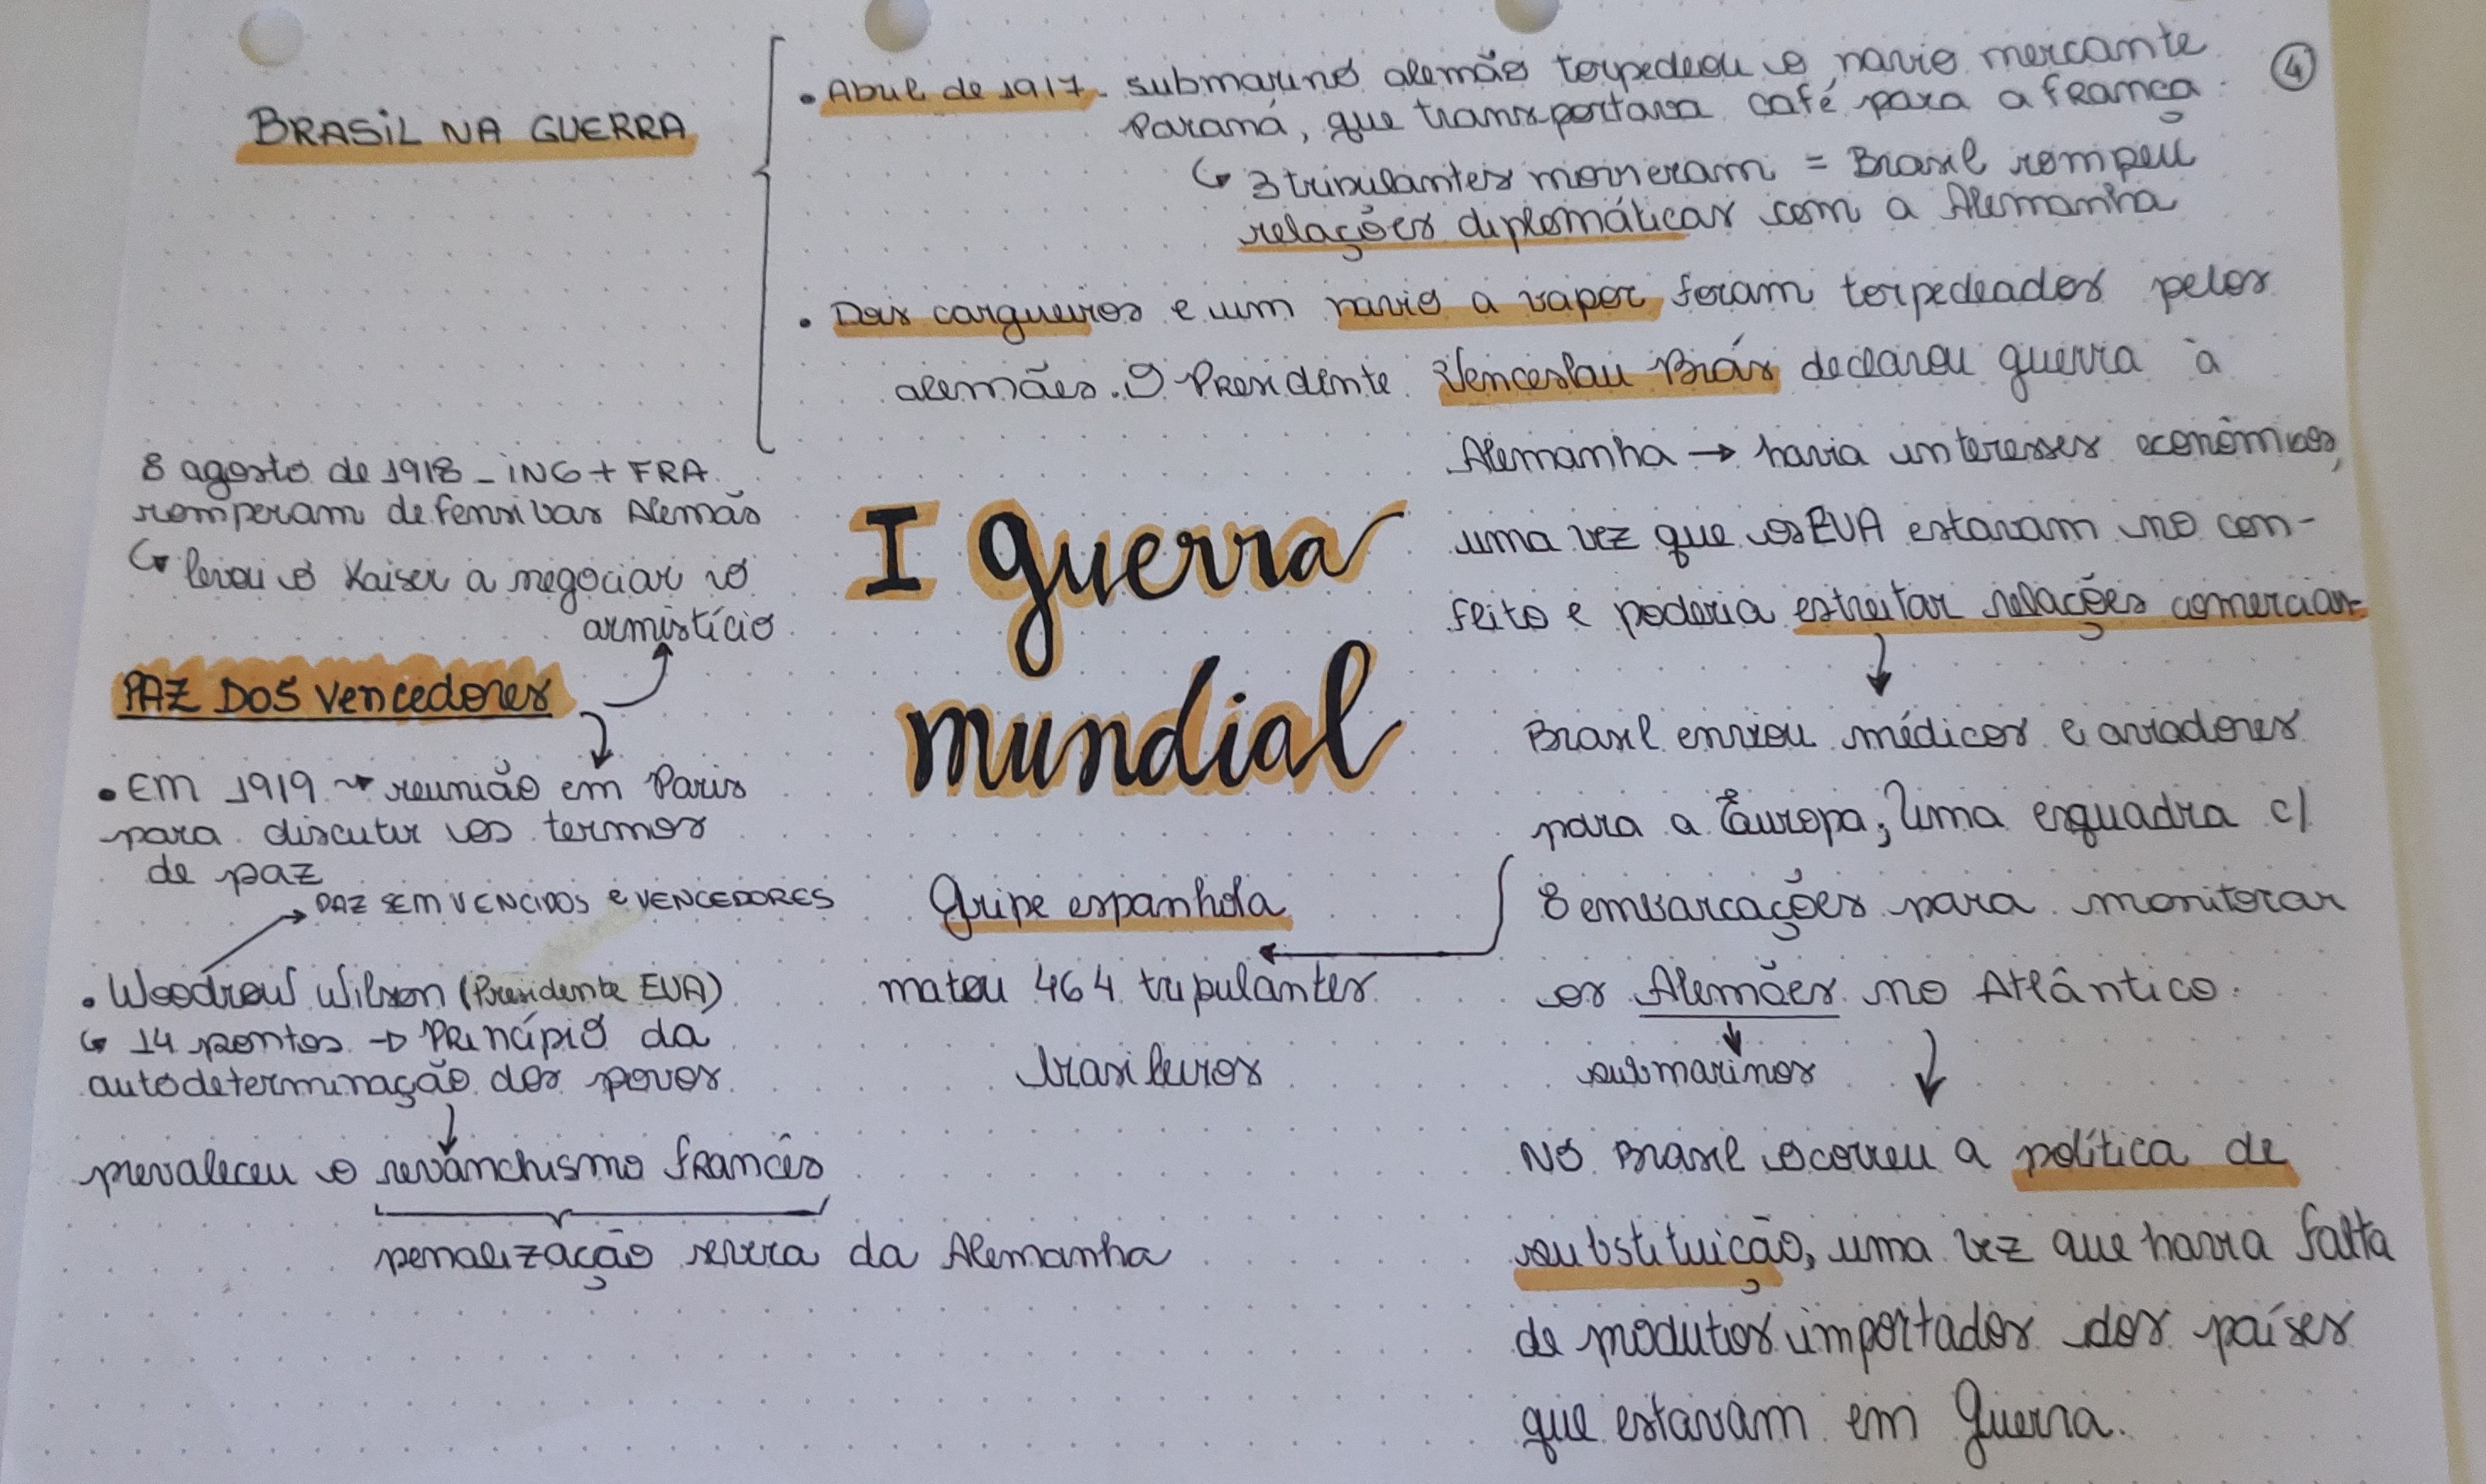 ④
BRASIL NA GUERRA
• Abril de 1917 - submarino alemão torpedeou o navio mercante
Paraná, que transportava café para a França.
↳ 3 tripulantes morreram = Brasil rompeu
relações diplomáticas com a Alemanha
• Dois cargueiros e um navio a vapor foram torpedeados pelos
alemães. O Presidente Venceslau Brás declarou guerra à
Alemanha → havia interesses econômicos,
uma vez que os EUA estavam no con-
flito e poderia estreitar relações comerciais
↓
Brasil enviou médicos e aviadores
para a Europa; uma esquadra c/
8 embarcações para monitorar
os Alemães no Atlântico.
submarinos
No Brasil ocorreu a política de
substituição, uma vez que havia falta
de produtos importados dos países
que estavam em guerra.
I guerra
mundial
Gripe espanhola
matou 464 tripulantes
brasileiros
8 agosto de 1918 - ING + FRA
romperam defensivas Alemãs
↳ levou o Kaiser a negociar o
armistício
PAZ DOS Vencedores
• Em 1919 → reunião em Paris
para discutir os termos
de paz
PAZ SEM VENCIDOS e VENCEDORES
• Woodrow Wilson (Presidente EUA)
↳ 14 pontos → Princípio da
autodeterminação dos povos
↓
prevaleceu o revanchismo francês
penalização severa da Alemanha